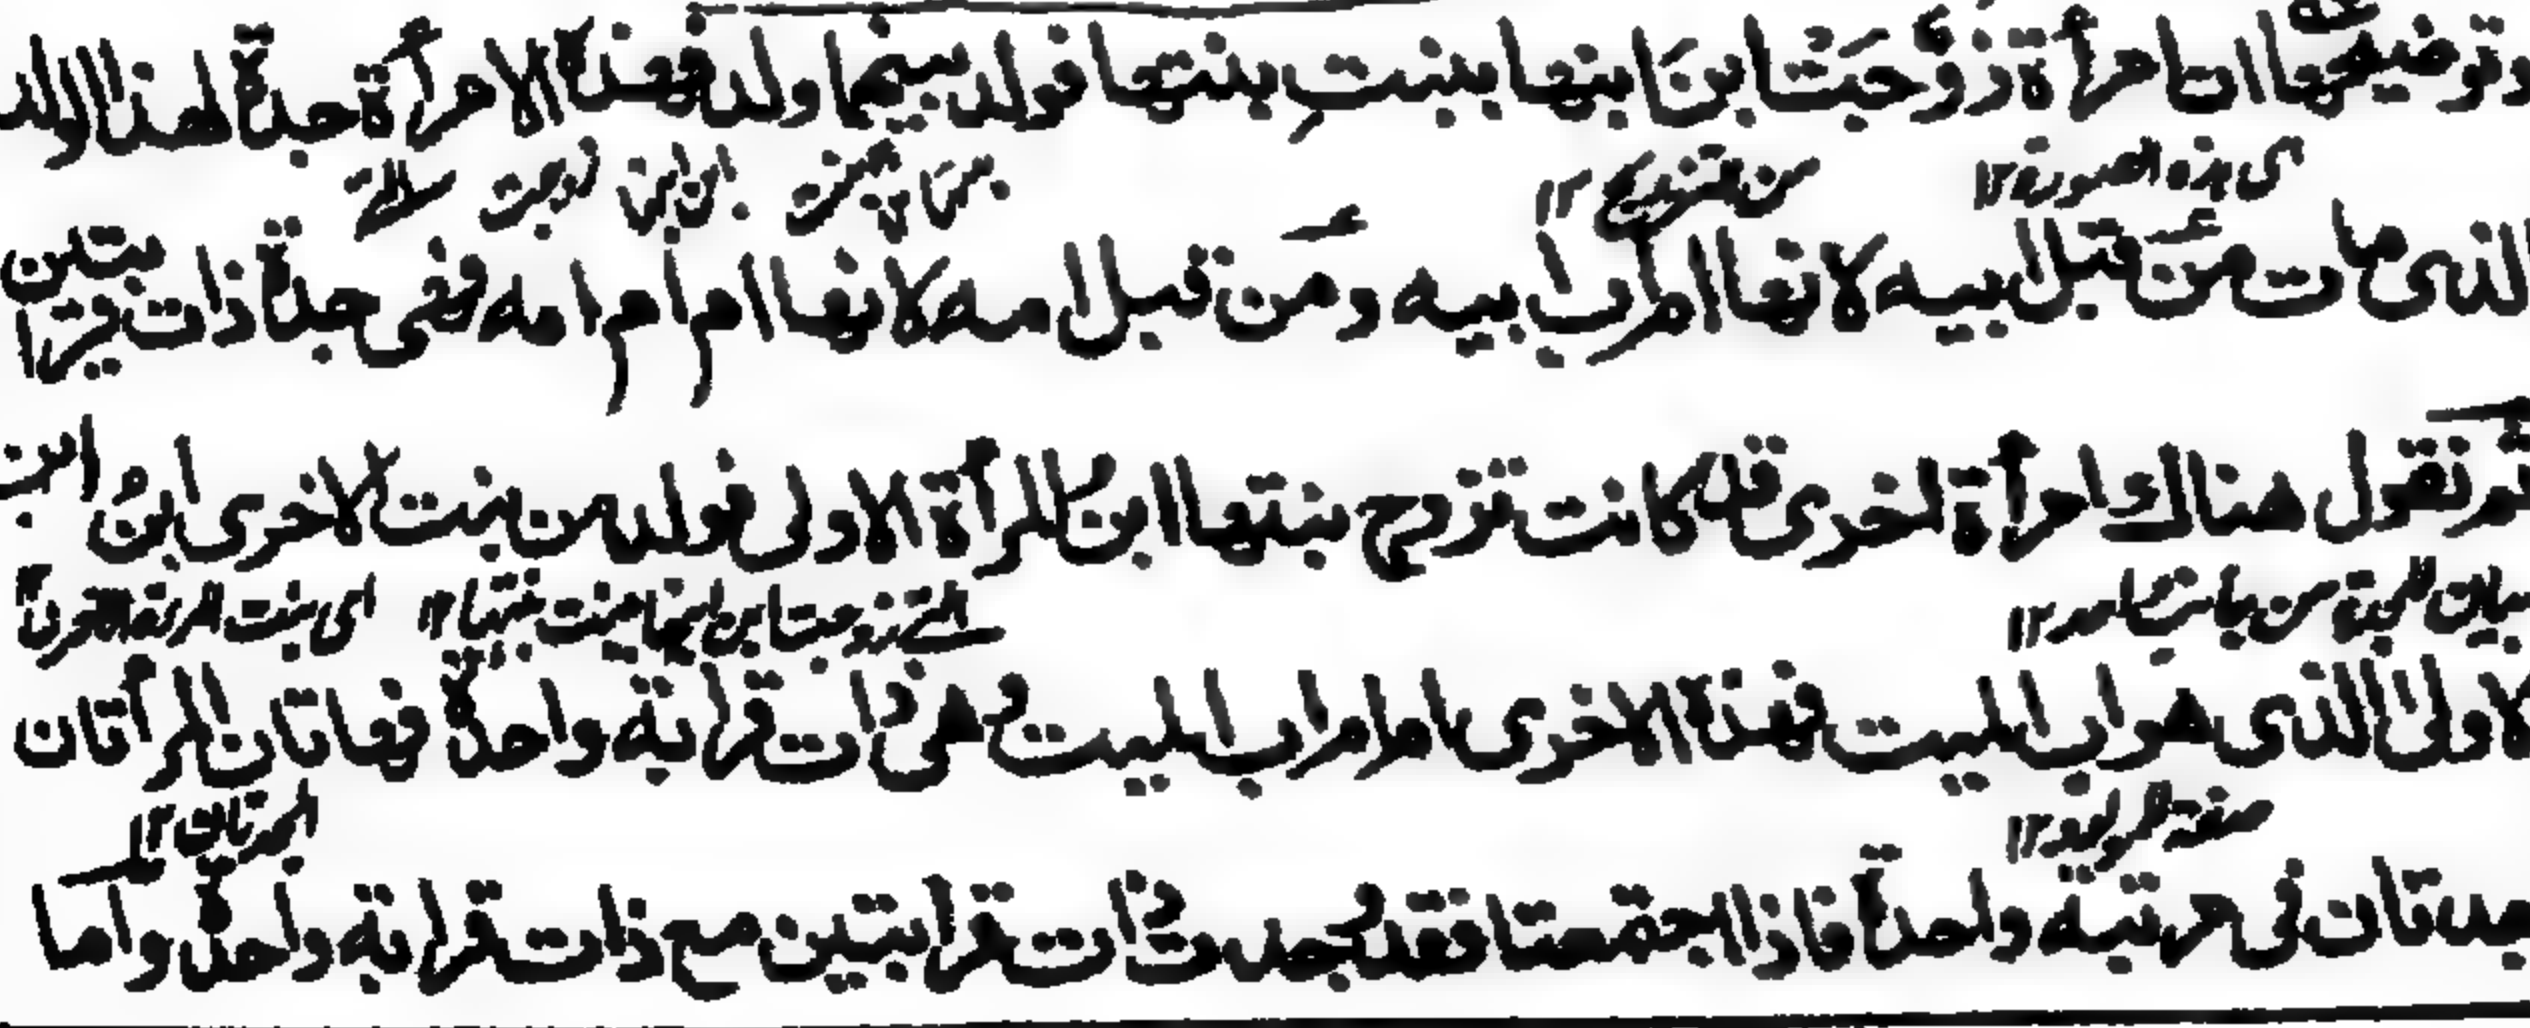 وتوضيحها ان امرأة زوَّجَتْ ابنَ ابنها ببنتِ بنتها فولد بينهما ولد فهذه الامرأة جدة لهذا الولد
من هذه الصورة ١٢
الذى مات من قبل ابيه لانها ام اب ابيه ومن قبل امه لانها ام ام امه فهى جدة ذات قرابتين
ثم نقول هناك امرأة اخرى قد كانت تزوج بنتها ابن المرأة الاولى فولد من بنت الاخرى ابنُ ابن
التى زوجت ابن ابنها بنت بنتها ١٢ اى بنت المرأة الاخرى
الاولىٰ الذى هو اب الميت فهذه الاخرى ام ام اب الميت وهى ذات قرابة واحدة فهاتان المرأتان
صفة المولود ١٢
الجدتان ١٢
جدتان فى مرتبة واحدة فاذا اجتمعتا فقد وجدت ذات قرابتين مع ذات قرابة واحدة واما